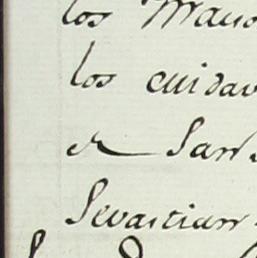 los Mano
los cuidav
er San
Sevastian